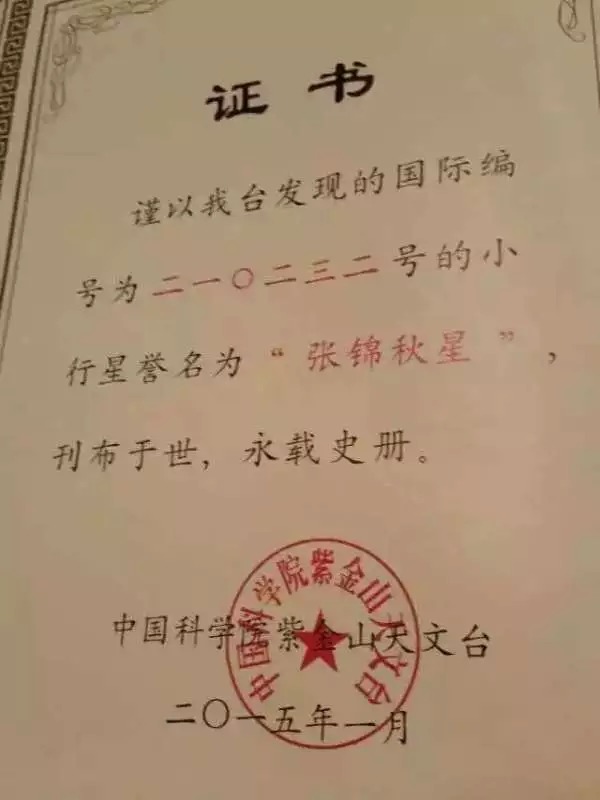 证书
谨以我台发现的国际编
号为二一〇二三二号的小
行星誉名为“张锦秋星”,
刊布于世，永载史册。
中国科学院紫金山天文台
中国科学院紫金山天文台
二〇一五年一月